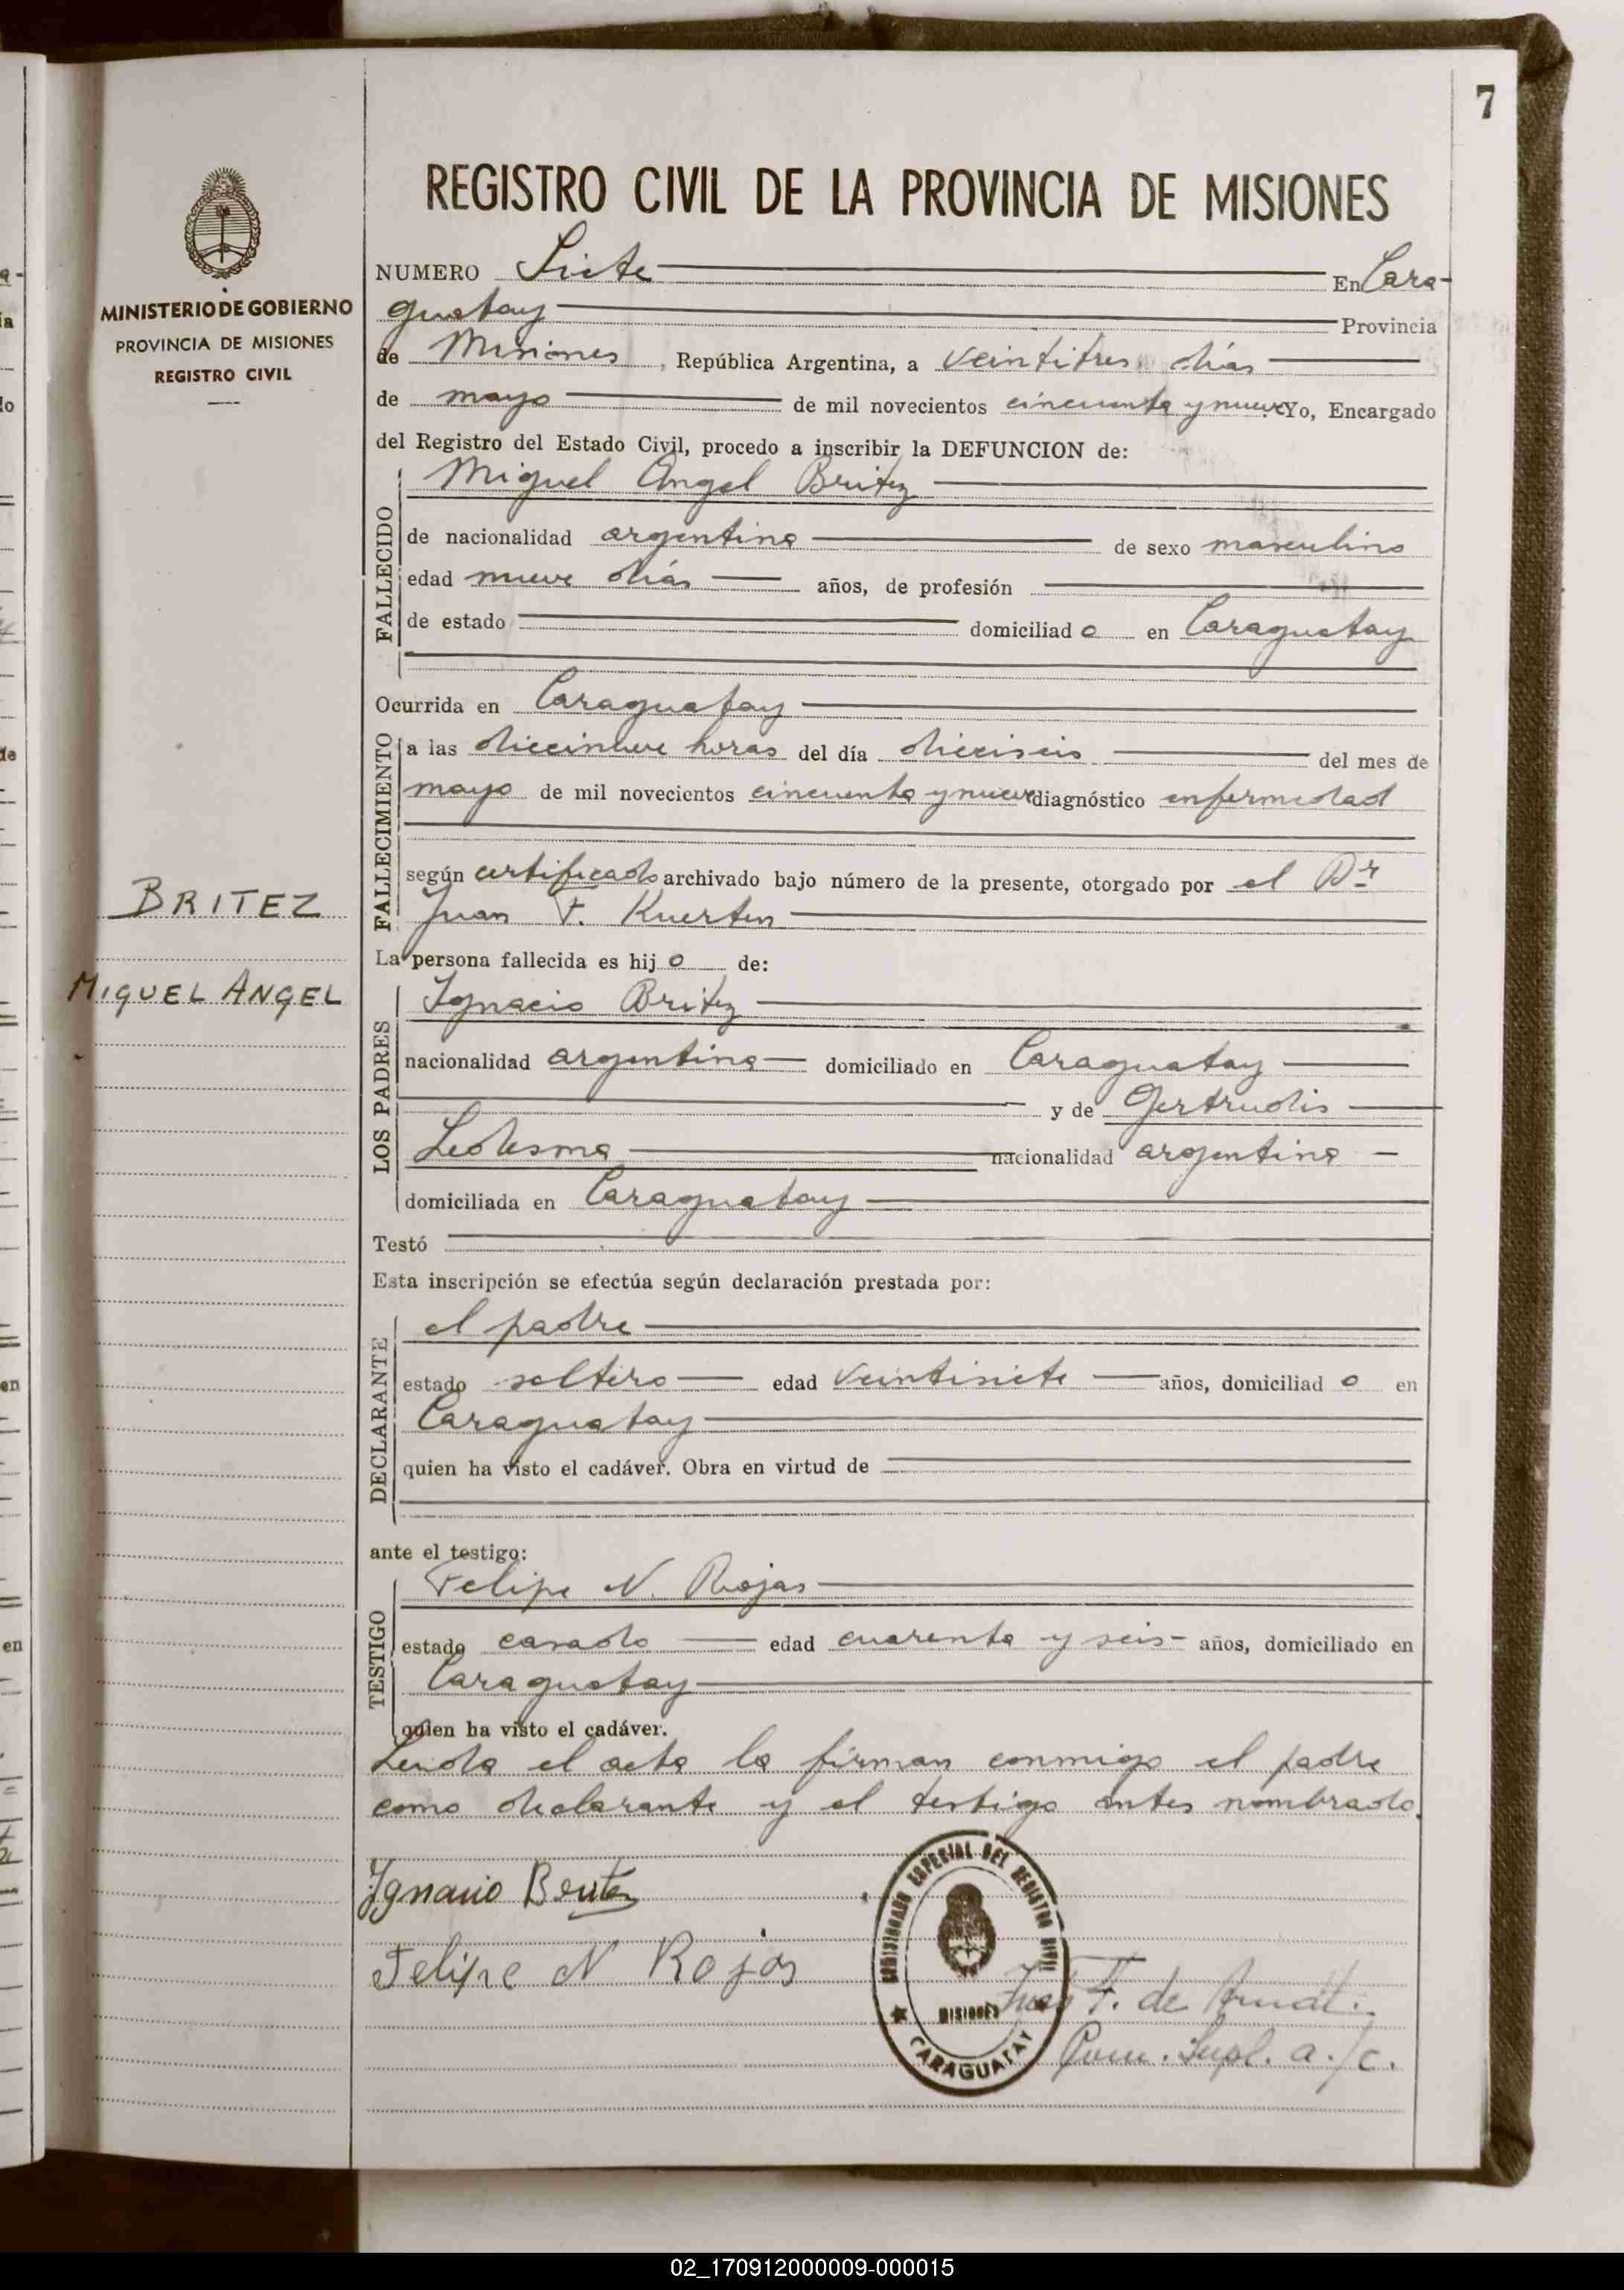 7
REGISTRO CIVIL DE LA PROVINCIA DE MISIONES
MINISTERIO DE GOBIERNO
PROVINCIA DE MISIONES
REGISTRO CIVIL
BRITEZ
MIGUEL ANGEL
NUMERO Siete En Cara-
guatay Provincia
de Misiones, República Argentina, a veintitres días
de mayo de mil novecientos cincuenta y nueve Yo, Encargado
del Registro del Estado Civil, procedo a inscribir la DEFUNCION de:
FALLECIDO
Miguel Angel Britez
de nacionalidad argentina de sexo masculino
edad nueve días años, de profesión
de estado domiciliado en Caraguatay
Ocurrida en Caraguatay
FALLECIMIENTO
a las diecinueve horas del día dieciseis del mes de
mayo de mil novecientos cincuenta y nueve diagnóstico enfermedad
según certificado archivado bajo número de la presente, otorgado por el Dr
Juan F. Kuerten
La persona fallecida es hijo de:
LOS PADRES
Ignacio Britez
nacionalidad argentina domiciliado en Caraguatay
y de Gertrudis
Ledesma nacionalidad argentina
domiciliada en Caraguatay
Testó
Esta inscripción se efectúa según declaración prestada por:
DECLARANTE
el padre
estado soltero edad veintisiete años, domiciliado en
Caraguatay
quien ha visto el cadáver. Obra en virtud de
ante el testigo:
TESTIGO
Felipe N. Rojas
estado casado edad cuarenta y seis años, domiciliado en
Caraguatay
quien ha visto el cadáver.
Leida el acta la firman conmigo el padre
como declarante y el testigo antes nombrado.
Ignacio Britez
Felipe N Rojas
ESPECIAL DEL REGISTRO CIVIL
MISIONES
CARAGUATAY
F. de
Supl. a./c.
02_170912000009-000015